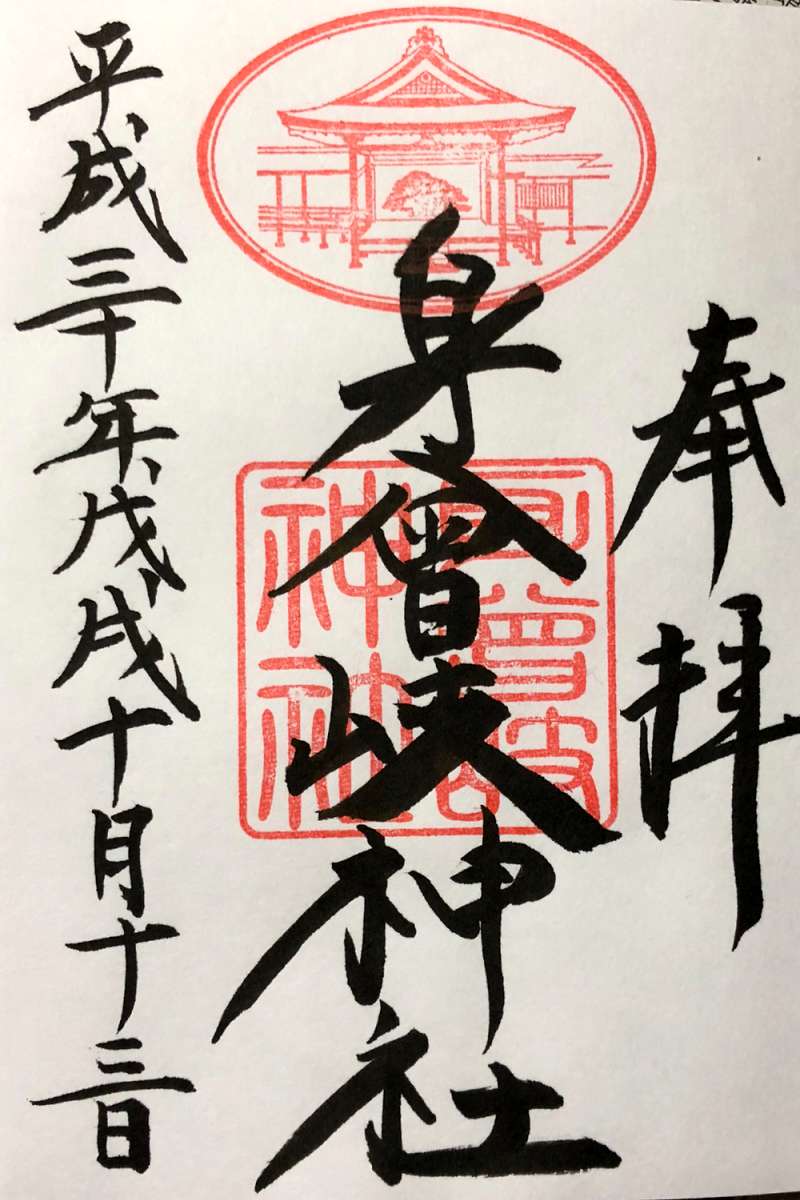 奉拝
身曾岐神社
平成三十年戊戌十月十三日
身曾岐
神社